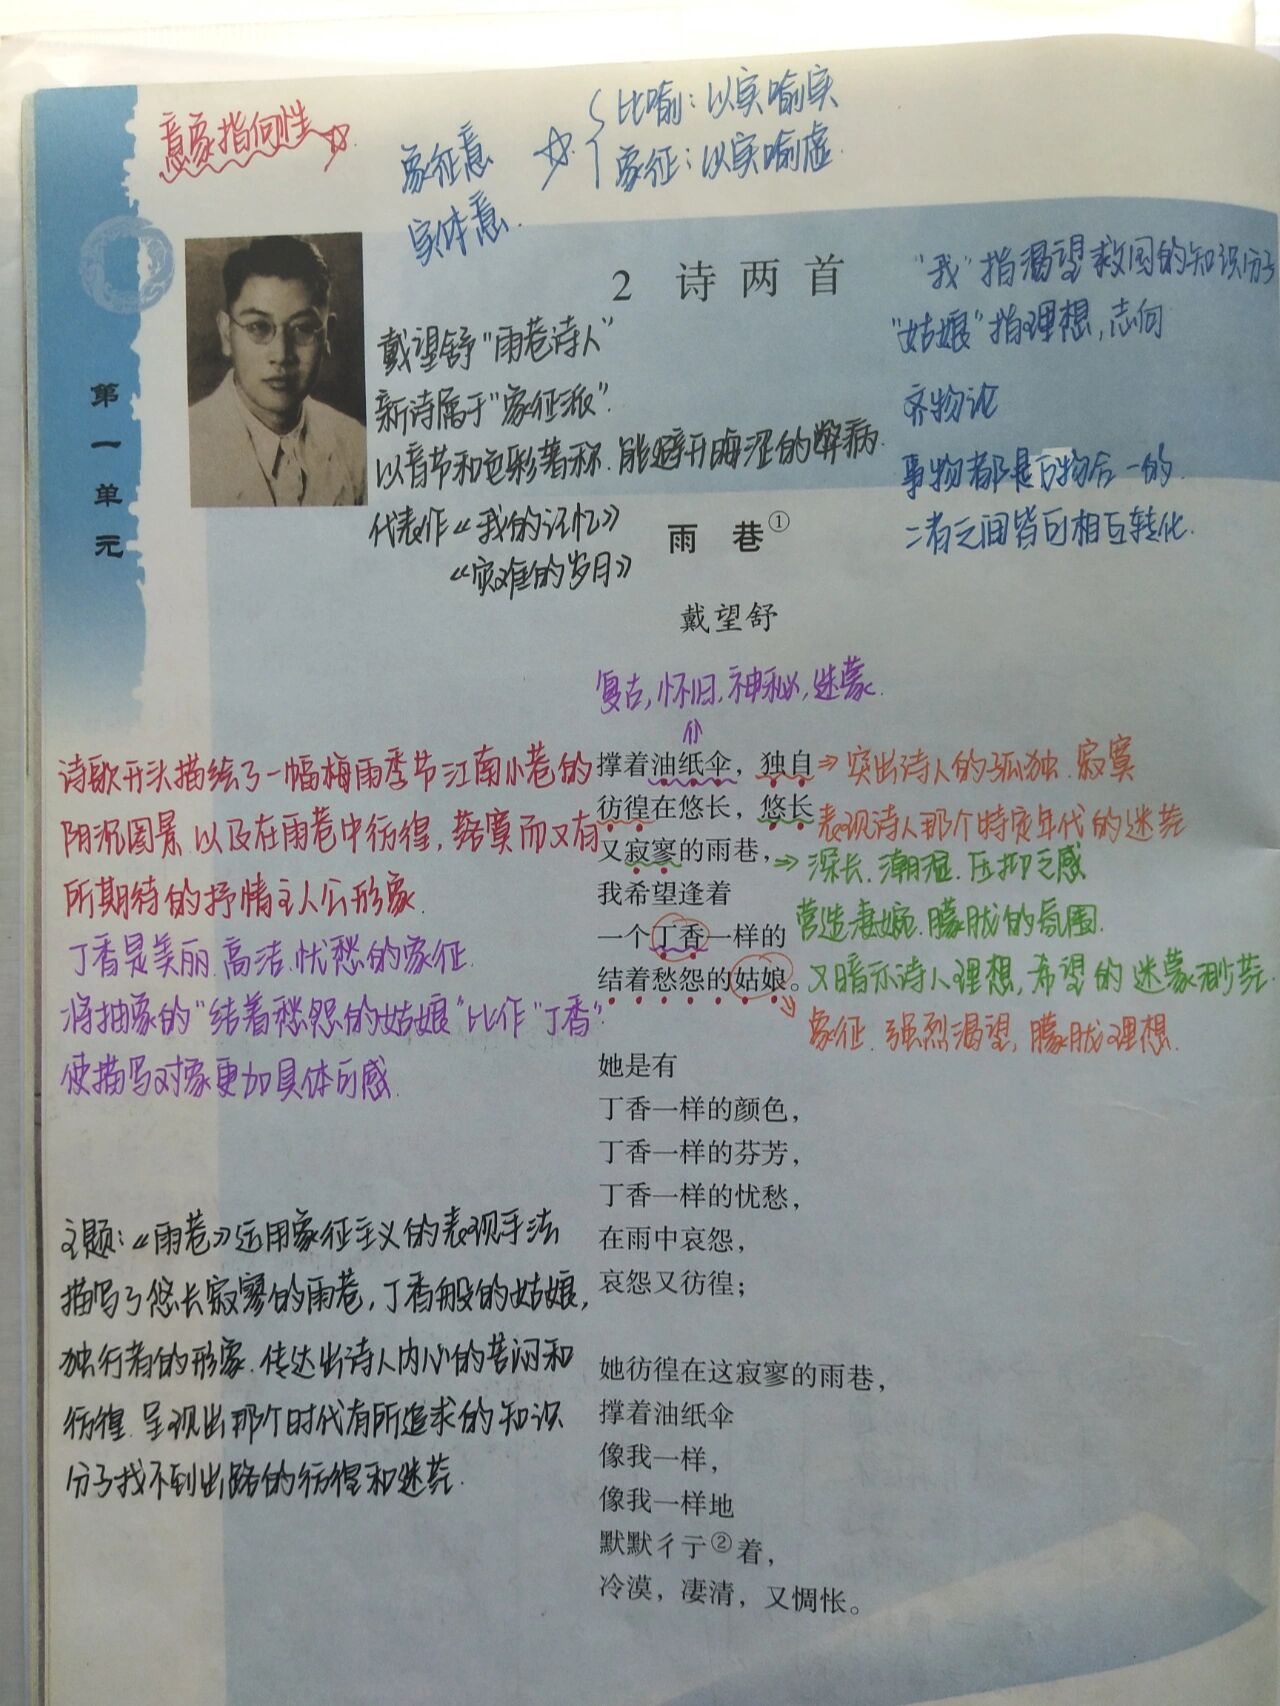 意象指向性
象征意
实体意.
比喻：以实喻实
象征：以实喻虚.
第一单元
2 诗两首
戴望舒“雨巷诗人”
新诗属于“象征派”.
以音节和色彩著称.能避开晦涩的弊病.
代表作《我的记忆》
《灾难的岁月》
“我”指渴望救国的知识分子
“姑娘”指理想,志向
齐物论
事物都是万物合一的.
二者之间皆可相互转化.
雨 巷①
戴望舒
复古,怀旧,神秘,迷蒙.
诗歌开头描绘了一幅梅雨季节江南小巷的
阴沉图景.以及在雨巷中彷徨,寂寞而又有
所期待的抒情主人公形象.
丁香是美丽.高洁.忧愁的象征.
将抽象的“结着愁怨的姑娘”比作“丁香”.
使描写对象更加具体可感.
撑着油纸伞，独自
彷徨在悠长，悠长
又寂寥的雨巷，
我希望逢着
一个丁香一样的
结着愁怨的姑娘。
突出诗人的孤独.寂寞
表现诗人那个特定年代的迷茫
深长.潮湿.压抑之感
营造凄婉.朦胧的氛围.
又暗示诗人理想,希望的迷蒙渺茫.
象征.强烈渴望,朦胧理想.
她是有
丁香一样的颜色，
丁香一样的芬芳，
丁香一样的忧愁，
在雨中哀怨，
哀怨又彷徨；
主题：《雨巷》运用象征主义的表现手法
描写了悠长寂寥的雨巷,丁香般的姑娘,
独行者的形象.传达出诗人内心的苦闷和
彷徨.呈现出那个时代有所追求的知识
分子找不到出路的彷徨和迷茫.
她彷徨在这寂寥的雨巷，
撑着油纸伞
像我一样，
像我一样地
默默彳亍②着，
冷漠，凄清，又惆怅。